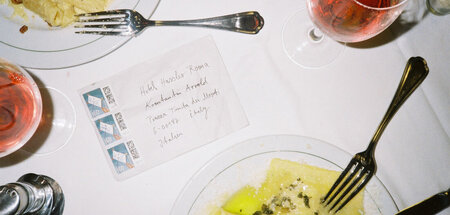 Hotel Hassler Roma
Konstantin Arnold
Piazza Trinità dei Monti
Italy
Italien